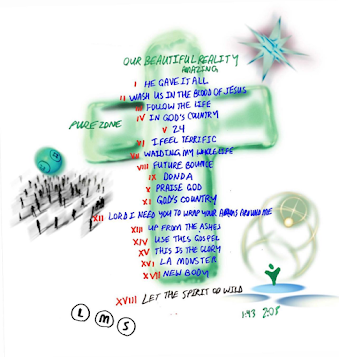 OUR BEAUTIFUL REALITY
AMAZING
I HE GAVE IT ALL
II WASH US IN THE BLOOD OF JESUS
III FOLLOW THE LIFE
PURE ZONE
IV IN GOD'S COUNTRY
V 24
VI I FEEL TERRIFIC
VII WAIDING MY WHOLE LIFE
VIII FUTURE BOUNCE
IX DONDA
X PRAISE GOD
XI GOD'S COUNTRY
XII LORD I NEED YOU TO WRAP YOUR ARMS AROUND ME
XIII UP FROM THE ASHES
XIV USE THIS GOSPEL
XV THIS IS THE GLORY
XVI LA MONSTER
XVII NEW BODY
XVIII LET THE SPIRIT GO WILD
1:43 2:05
L M S